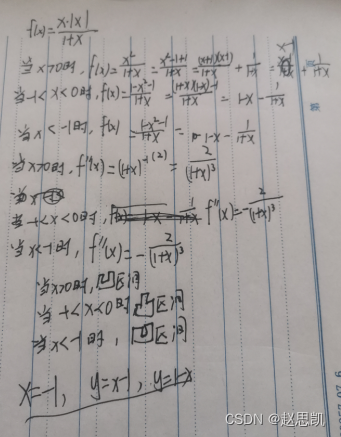 f(x)=x·|x|/1+x
当x>0时, f(x)=x²/1+x=x²-1+1/1+x=(x+1)(x-1)/1+x+1/1+x=x-1+1/1+x
当-1<x<0时, f(x)=1-x²-1/1+x=(1+x)(1-x)-1/1+x=1-x-1/1+x
当x<-1时, f(x)=1-x²-1/1+x=1-x-1/1+x
当x>0时, f''(x)=(1+x)⁻¹⁽²⁾=2/(1+x)³
当x
当-1<x<0时, f''(x)=-2/(1+x)³
当x<-1时, f''(x)=-2/(1+x)³
当x>0时, 凹区间
当-1<x<0时 凸区间
当x<-1时, 凹区间
x=-1, y=x-1, y=1-x
CSDN @赵思凯